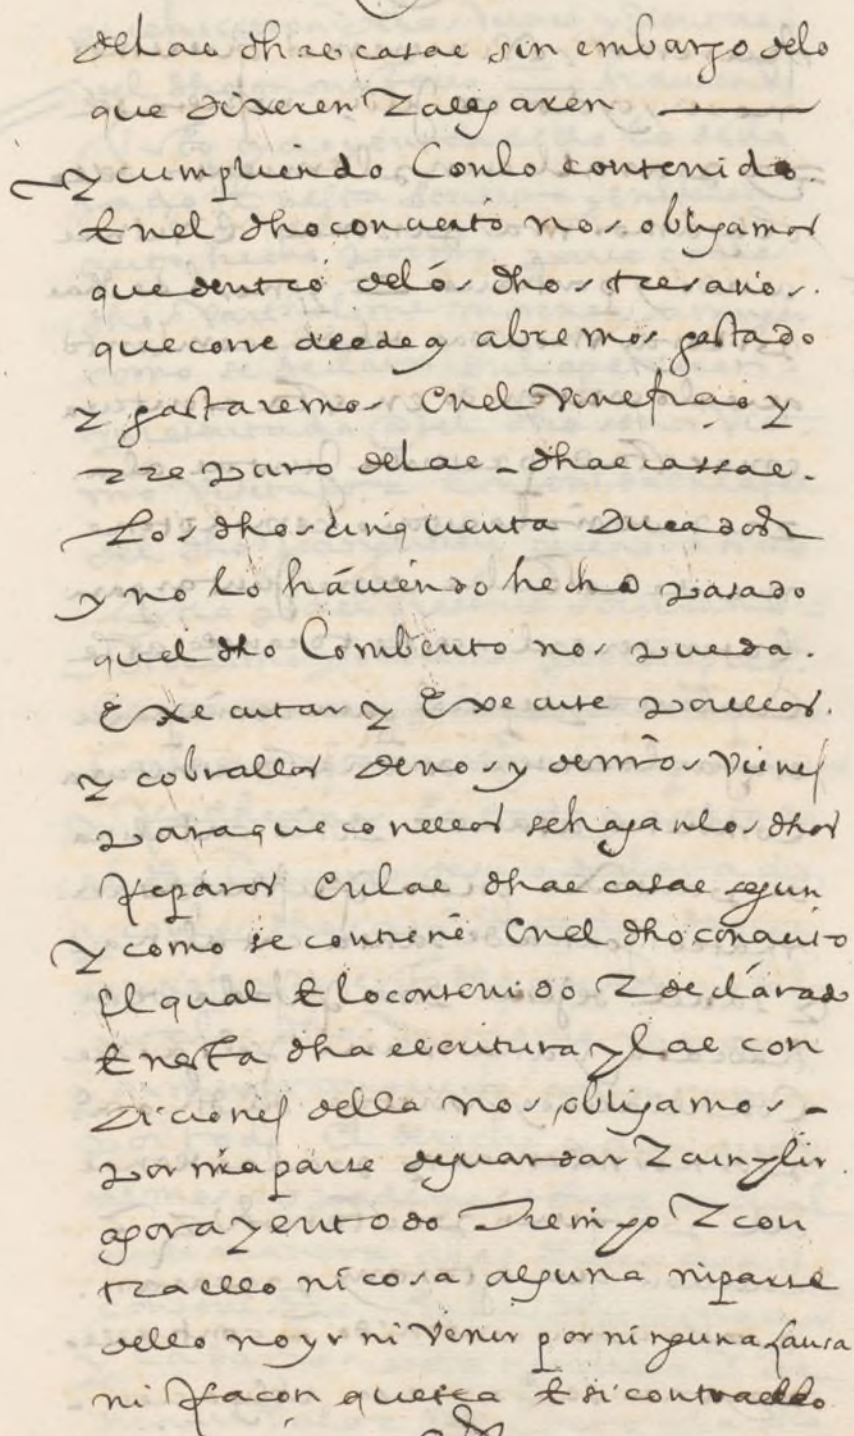 delas dhas casas sin embargo delo
que dixeren E alegaren
y cumpliendo Conlo contenido
Enel dho concierto nos obligamos
que dentro delos dhos tres años
que corre desde oy abremos gastado
y gastaremos Enel Veneficio y
rreparo delas dhas cassas
Los dhos cinquenta Ducados
y no lo haviendo hecho pasado
quel dho Combento nos pueda
Executar y Execute por ellos
y cobrallos denos y denros vienes
para que con ellos sehagan los dhos
Reparos Enlas dhas casas segun
y como se contiene Enel dho concierto
El qual E lo contenido E declarado
Enesta dha escritura y las con
Diciones della nos obligamos
por nra parte deguardar E cumplir
agora y en todo Tiempo E con
tra ello ni cosa alguna ni parte
dello no yr ni Venir por ninguna causa
ni Raçon que sea E si contra ello